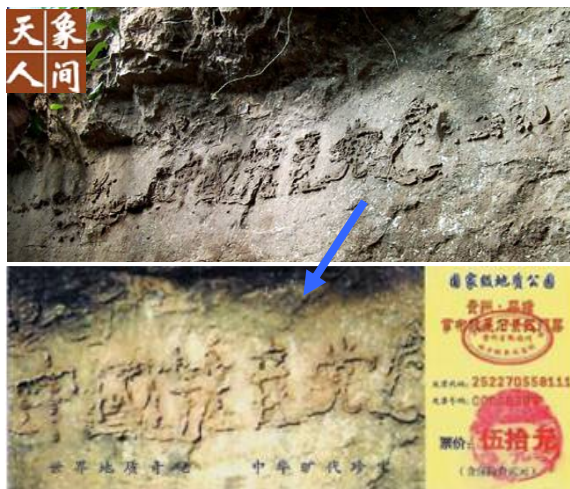 天象
人间
中國共产党亡
中國共产党亡
世界地质奇观 中华旷代珍宝
国家级地质公园
贵州·平塘
252270558111
票价：伍拾元